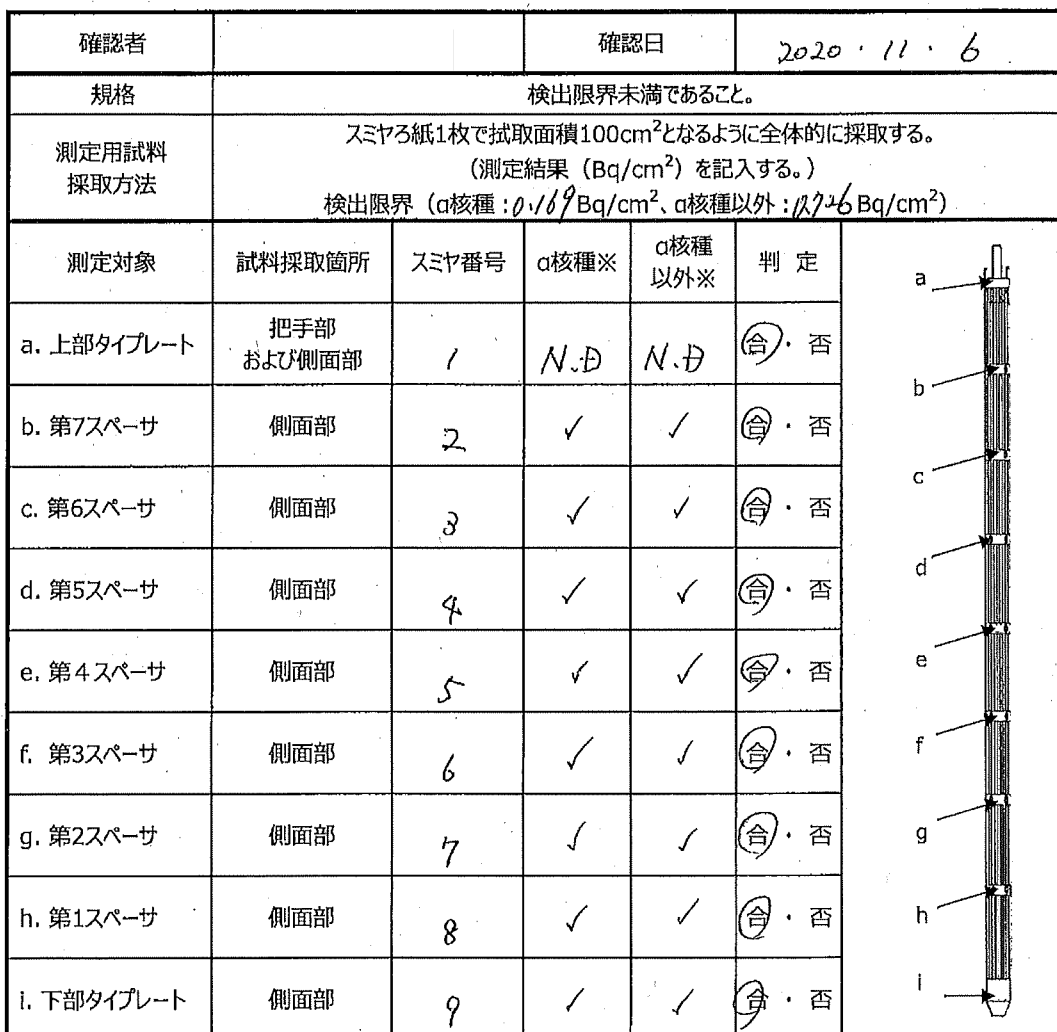 確認者 確認日 2020・11・6
規格 検出限界未満であること。
測定用試料
採取方法
スミヤろ紙1枚で拭取面積100cm²となるように全体的に採取する。
(測定結果(Bq/cm²)を記入する。)
検出限界(α核種:0.169Bq/cm²、α核種以外: Bq/cm²)
測定対象 試料採取箇所 スミヤ番号 α核種※ α核種以外※ 判 定
a. 上部タイプレート 把手部および側面部 1 N.D N.D 合・否
b. 第7スペーサ 側面部 2 ✓ ✓ 合・否
c. 第6スペーサ 側面部 3 ✓ ✓ 合・否
d. 第5スペーサ 側面部 4 ✓ ✓ 合・否
e. 第4スペーサ 側面部 5 ✓ ✓ 合・否
f. 第3スペーサ 側面部 6 ✓ ✓ 合・否
g. 第2スペーサ 側面部 7 ✓ ✓ 合・否
h. 第1スペーサ 側面部 8 ✓ ✓ 合・否
i. 下部タイプレート 側面部 9 ✓ ✓ 合・否
a
b
c
d
e
f
g
h
i